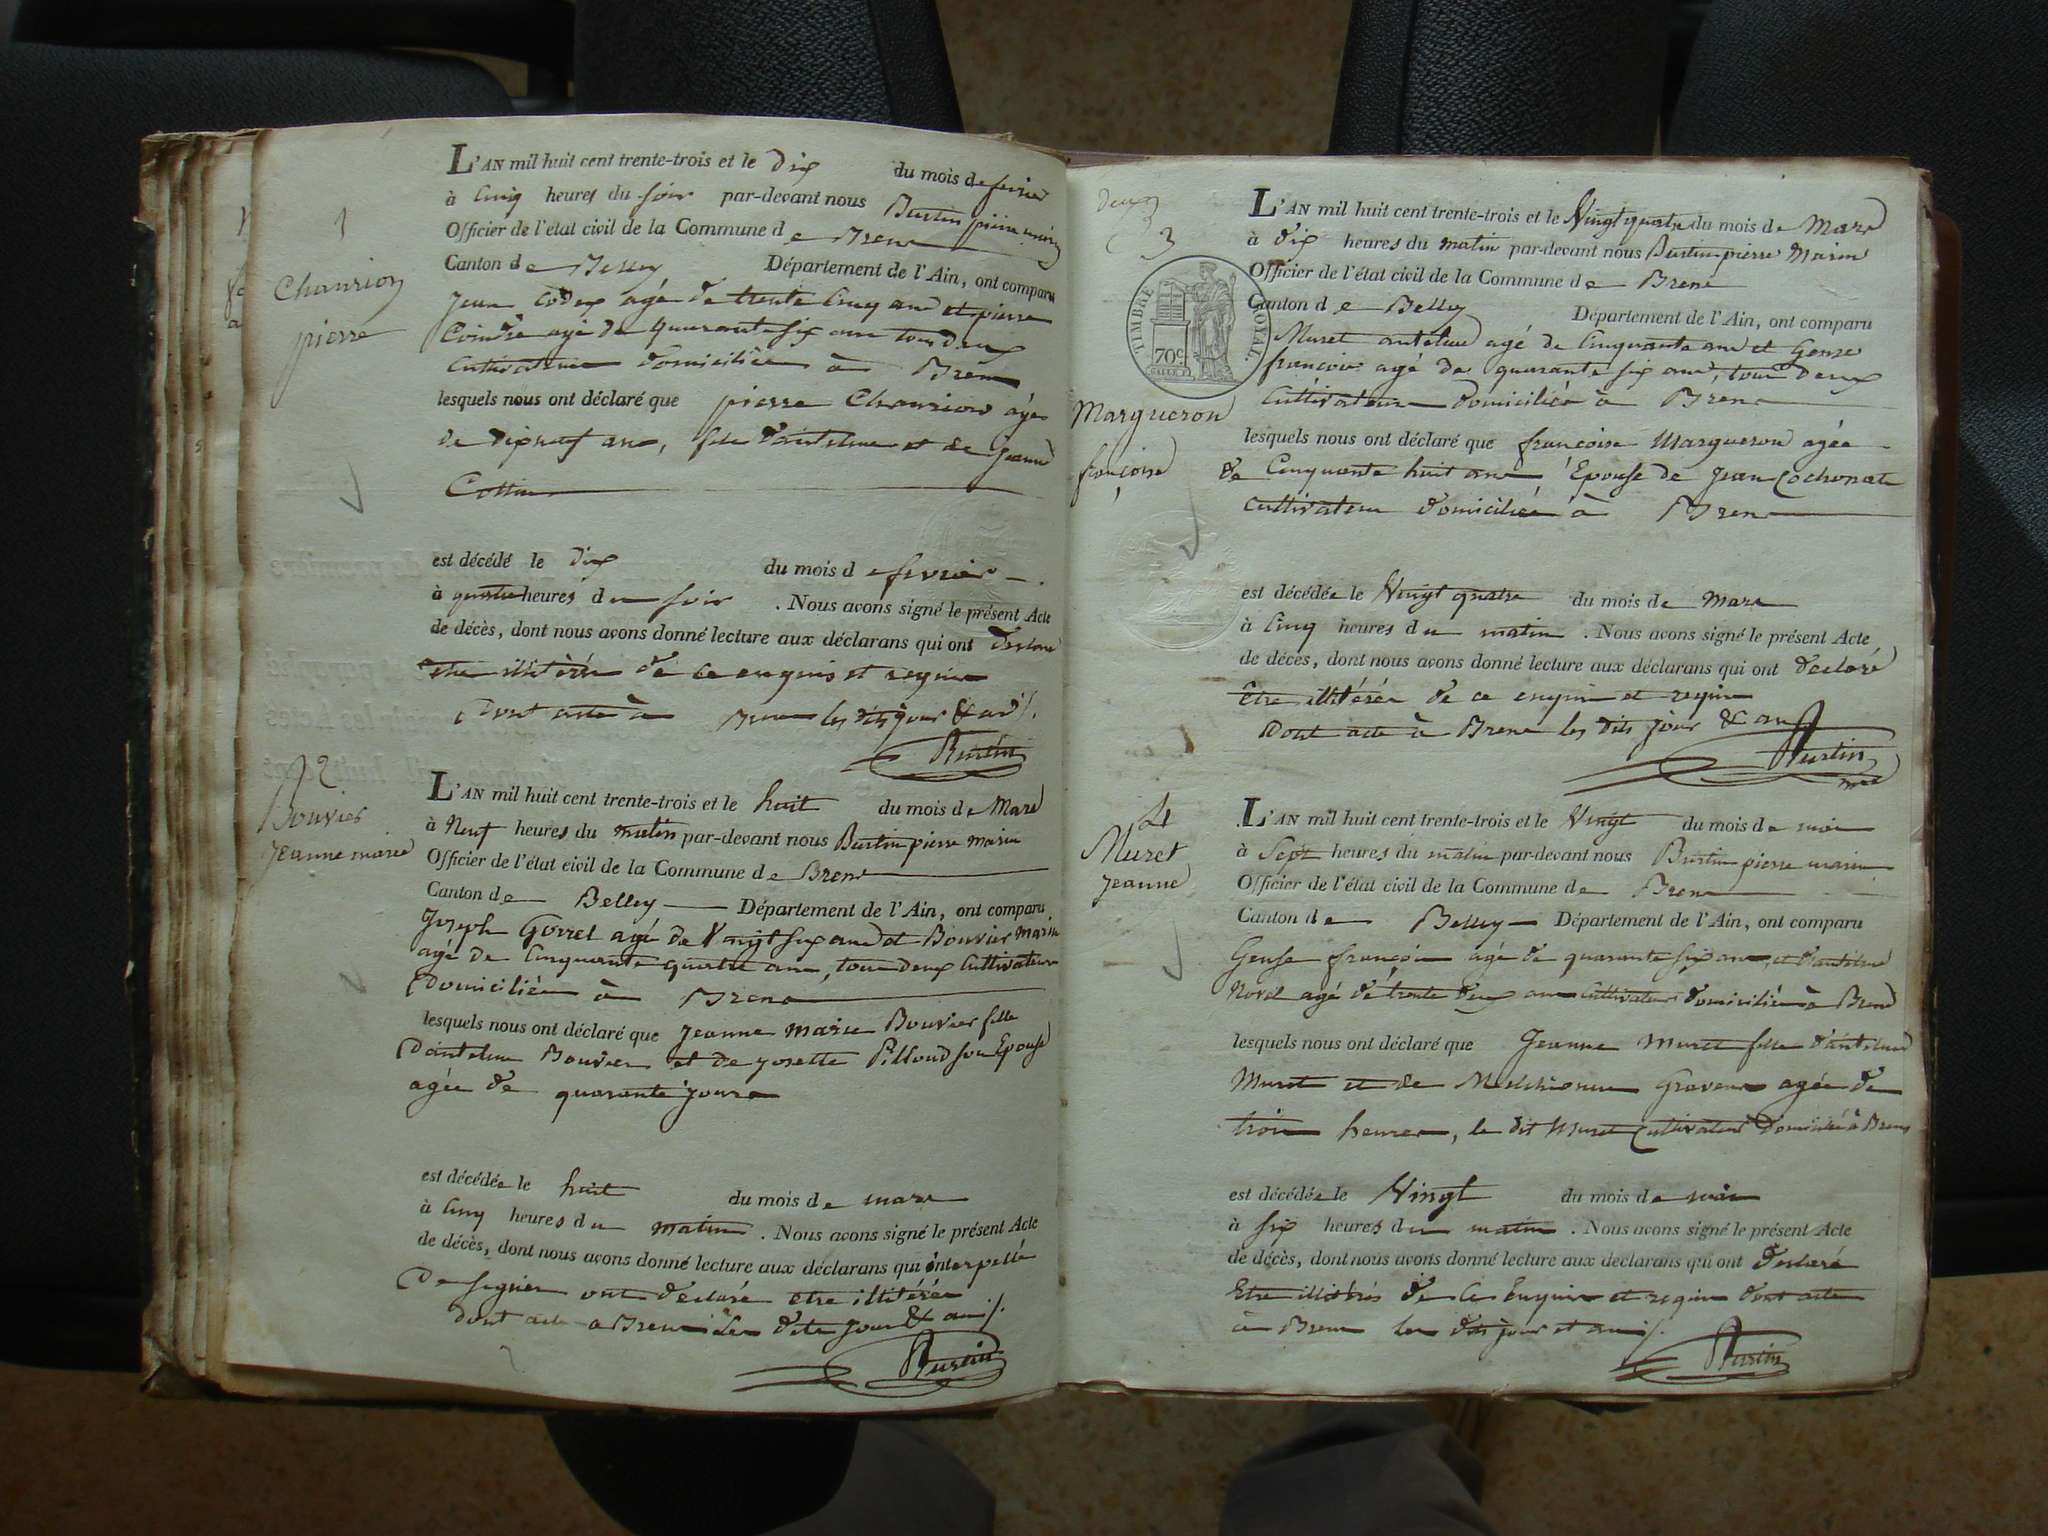 1
Chanrion
pierre
L'AN mil huit cent trente-trois et le dix du mois de fevrier
à cinq heures du soir par-devant nous Bustin pierre marin
Officier de l'état civil de la Commune de Brens
Canton de Belley Département de l'Ain, ont comparu
Jean agé de trente cinq ans et pierre
Coindre agé de quarante six ans tous deux
cultivateurs domiciliés à Brens
lesquels nous ont déclaré que pierre Chanrion agé
de dixneuf ans, fils d'antelme et de Jeanne
Cottin
est décédé le dix du mois de fevrier
à quatre heures du soir . Nous avons signé le présent Acte
de décès, dont nous avons donné lecture aux déclarans qui ont declaré
etre illitérés de ce enquis et requis
Dont acte à Brens les dits jour & an
Bustin
2
Bouvier
Jeanne marie
L'AN mil huit cent trente-trois et le huit du mois de Mars
à Neuf heures du matin par-devant nous Bustin pierre marin
Officier de l'état civil de la Commune de Brens
Canton de Belley Département de l'Ain, ont comparu
Joseph Gorrel agé de Vingt six ans et Bouvier Marin
agé de Cinquante quatre ans, tous deux Cultivateurs
Domiciliés à Brens
lesquels nous ont déclaré que Jeanne Marie Bouvier fille
D'antelme Bouvier et de Josette Pilloud son Epouse
agée de quarante jours
est décédée le huit du mois de mars
à Cinq heures du matin . Nous avons signé le présent Acte
de décès, dont nous avons donné lecture aux déclarans qui interpellés
De signer ont declaré etre illitérés
dont acte a Brens Les dits jour & an
Bustin
deux
3
3
TIMBRE ROYAL.
70c
Margueron
françoise
L'AN mil huit cent trente-trois et le Vingt quatre du mois de Mars
à dix heures du matin par-devant nous Bustin pierre Marin
Officier de l'état civil de la Commune de Brens
Canton de Belley Département de l'Ain, ont comparu
Muret antelme agé de Cinquante ans et Gense
françois agé de quarante six ans, tous deux
Cultivateurs domiciliés à Brens
lesquels nous ont déclaré que françoise Margueron agée
de Cinquante huit ans Epouse de Jean Cochonat
cultivateur domiciliés à Brens
est décédée le Vingt quatre du mois de Mars
à Cinq heures du matin . Nous avons signé le présent Acte
de décès, dont nous avons donné lecture aux déclarans qui ont declaré
Etre illitérés de ce enquis et requis
Dont acte à Brens les dits jour & an
Bustin
4
Muret
Jeanne
L'AN mil huit cent trente-trois et le Vingt du mois de mai
à Sept heures du matin par-devant nous Bustin pierre marin
Officier de l'état civil de la Commune de Brens
Canton de Belley Département de l'Ain, ont comparu
Gense françois agé de quarante six ans, et d'antelme
agé de trente deux ans Cultivateurs domiciliés à Brens
lesquels nous ont déclaré que Jeanne Muret fille d'antelme
Muret et de agée de
trois heures, le dit Muret Cultivateur Domicilié à Brens
est décédée le Vingt du mois de mai
à Six heures du matin . Nous avons signé le présent Acte
de décès, dont nous avons donné lecture aux déclarans qui ont declaré
Etre illitérés de Ce Enquis et requis dont acte
à Brens les dits jour et an
Bustin